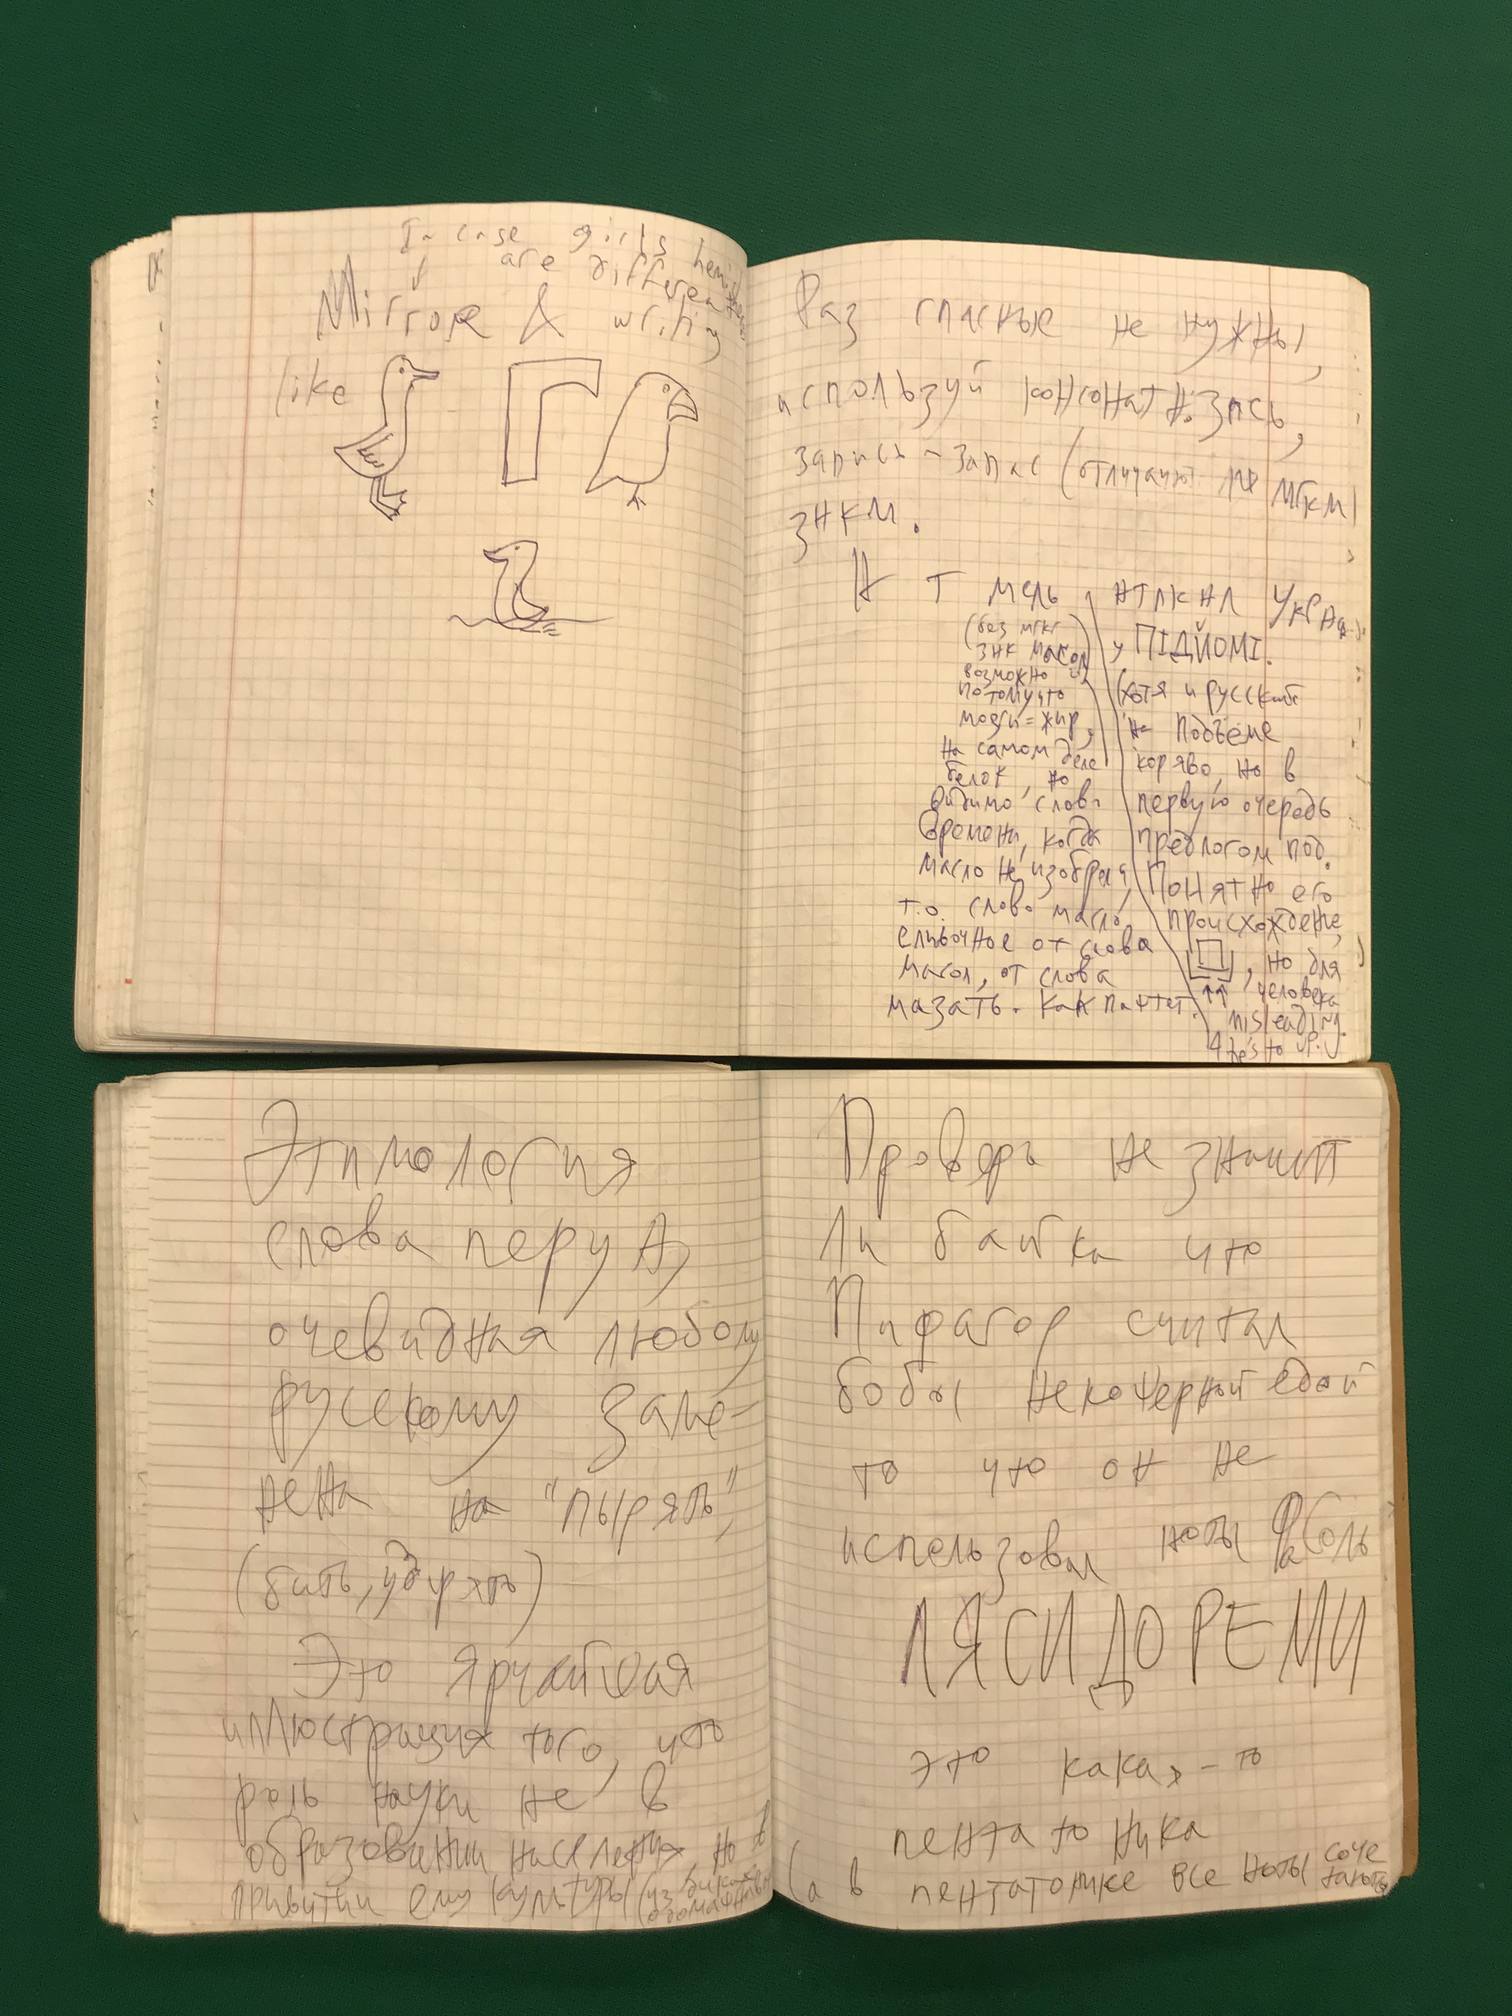 In case girls
are different
Mirror & writing
like
Г
Раз гласные не нужны,
используй консонатн. зпсь,
запись – запас (отличают
знкм.
Н т мель
(без мгкг
знк
возможно
потому что
мозги = жир,
на самом деле
белок, но
видимо слова
времени, когда
масло не
т.о. слово масло
сливочное от слова
, от слова
мазать. Как паштет.
нтлкнл
у ПІДЙОМІ.
(хотя и русский
на подъёме
коряво, но в
первую очередь
предлогом под.
Понятно его
происхождение,
, но для
человека
misleading.
up.
Этимология
слова перун,
очевидная любому
русскому заме-
нена на "пырять",
(бить, ударять)
Это ярчайшая
иллюстрация того, что
роль науки не в
образовании населения, но в
культуры (из
Проверь не значит
ли байка что
Пифагор считал
бобы некошерной едой
то что он не
использовал ноты Фа Соль
ЛЯ СИ ДО РЕ МИ
это какая-то
пентатоника
(а в пентатонике все ноты соче
таются